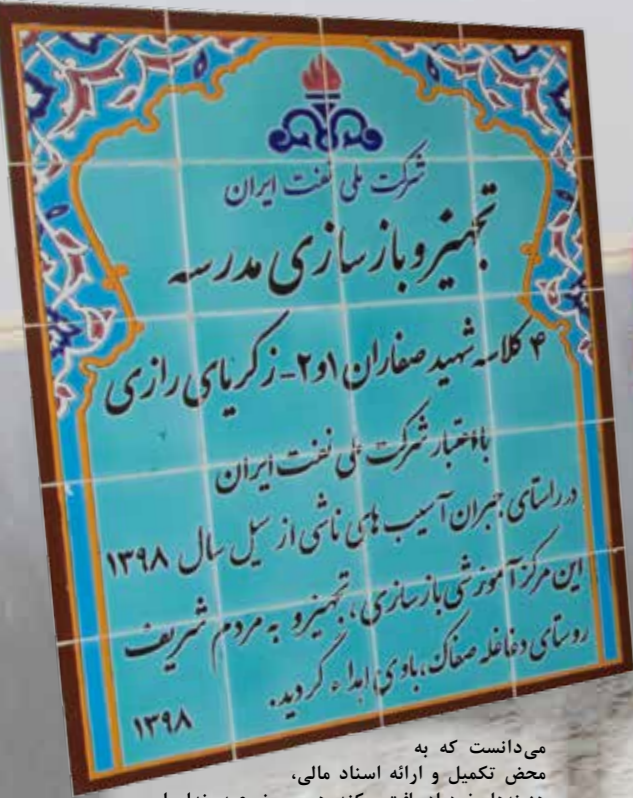 شرکت ملی نفت ایران
تجهیز و بازسازی مدرسه
۴ کلاسه شهید صفاران ۱و۲ - زکریای رازی
با اعتبار شرکت ملی نفت ایران
در راستای جبران آسیب های ناشی از سیل سال ۱۳۹۸
این مرکز آموزشی بازسازی، تجهیز و به مردم شریف
روستای دغاغله صفاک، باوی اهداء گردید.
۱۳۹۸
می‌دانست که به
محض تکمیل و ارائه اسناد مالی،